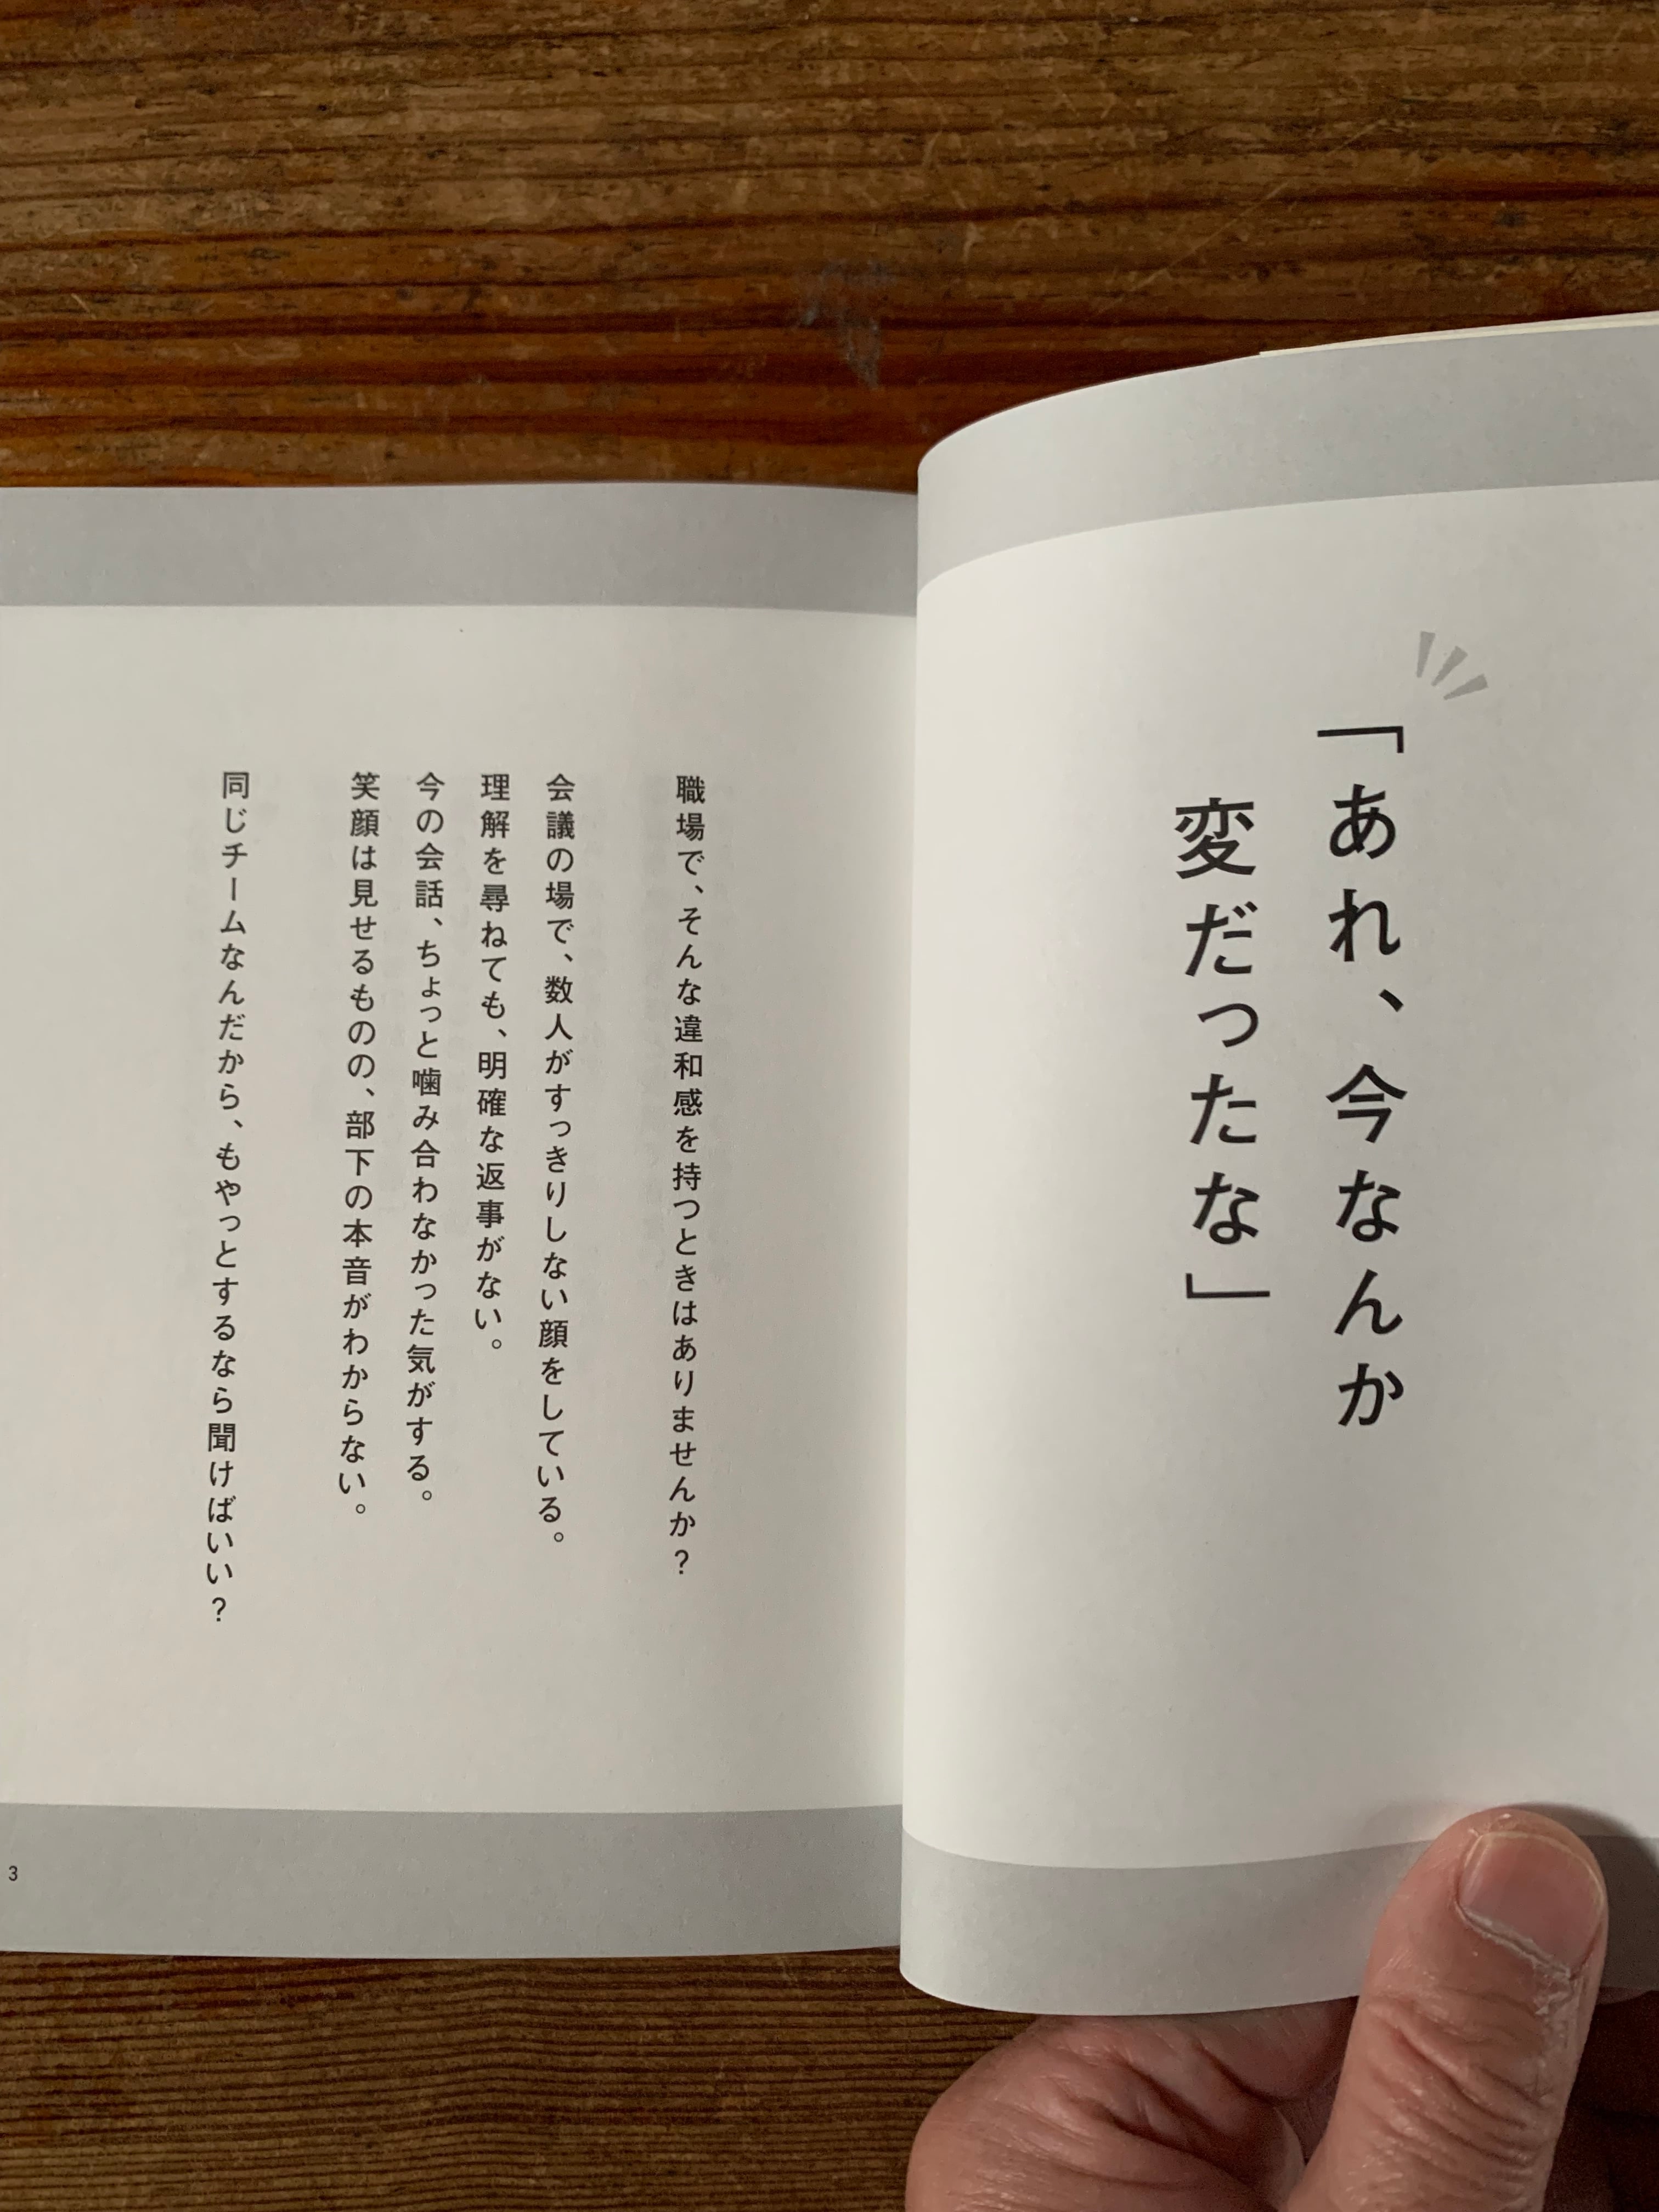 「あれ、今なんか
変だったな」
職場で、そんな違和感を持つときはありませんか?
会議の場で、数人がすっきりしない顔をしている。
理解を尋ねても、明確な返事がない。
今の会話、ちょっと噛み合わなかった気がする。
笑顔は見せるものの、部下の本音がわからない。
同じチームなんだから、もやっとするなら聞けばいい?
3